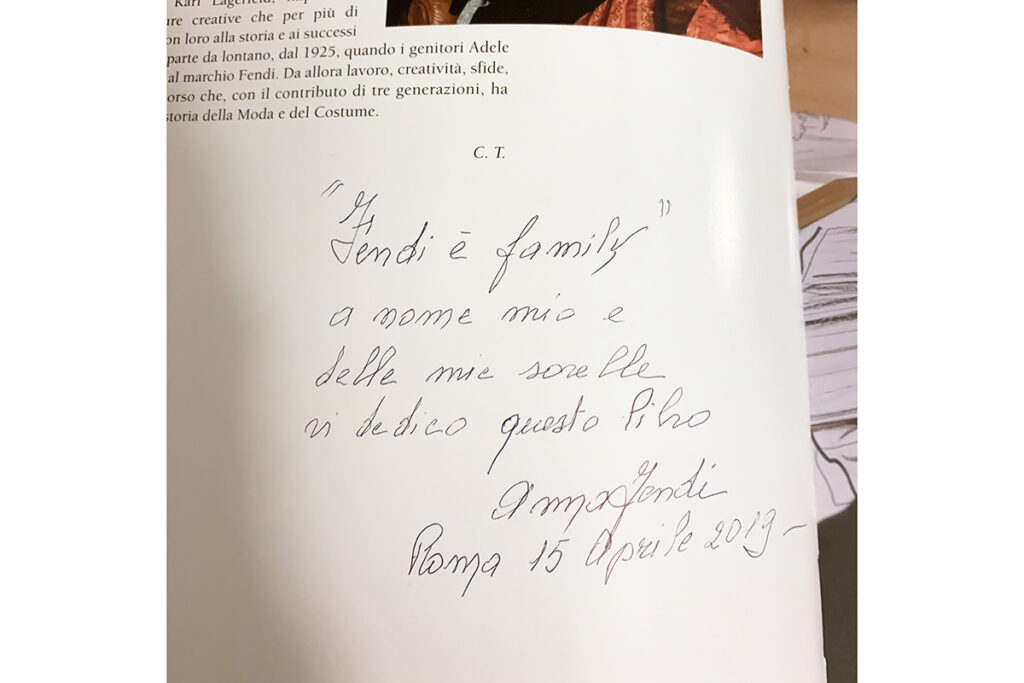 Karl Lagerfeld,
ure creative che per più di
on loro alla storia e ai successi
parte da lontano, dal 1925, quando i genitori Adele
al marchio Fendi. Da allora lavoro, creatività, sfide,
orso che, con il contributo di tre generazioni, ha
storia della Moda e del Costume.
C. T.
"Fendi è family"
a nome mio e
delle mie sorelle
vi dedico questo libro
Anna Fendi
Roma 15 Aprile 2019-